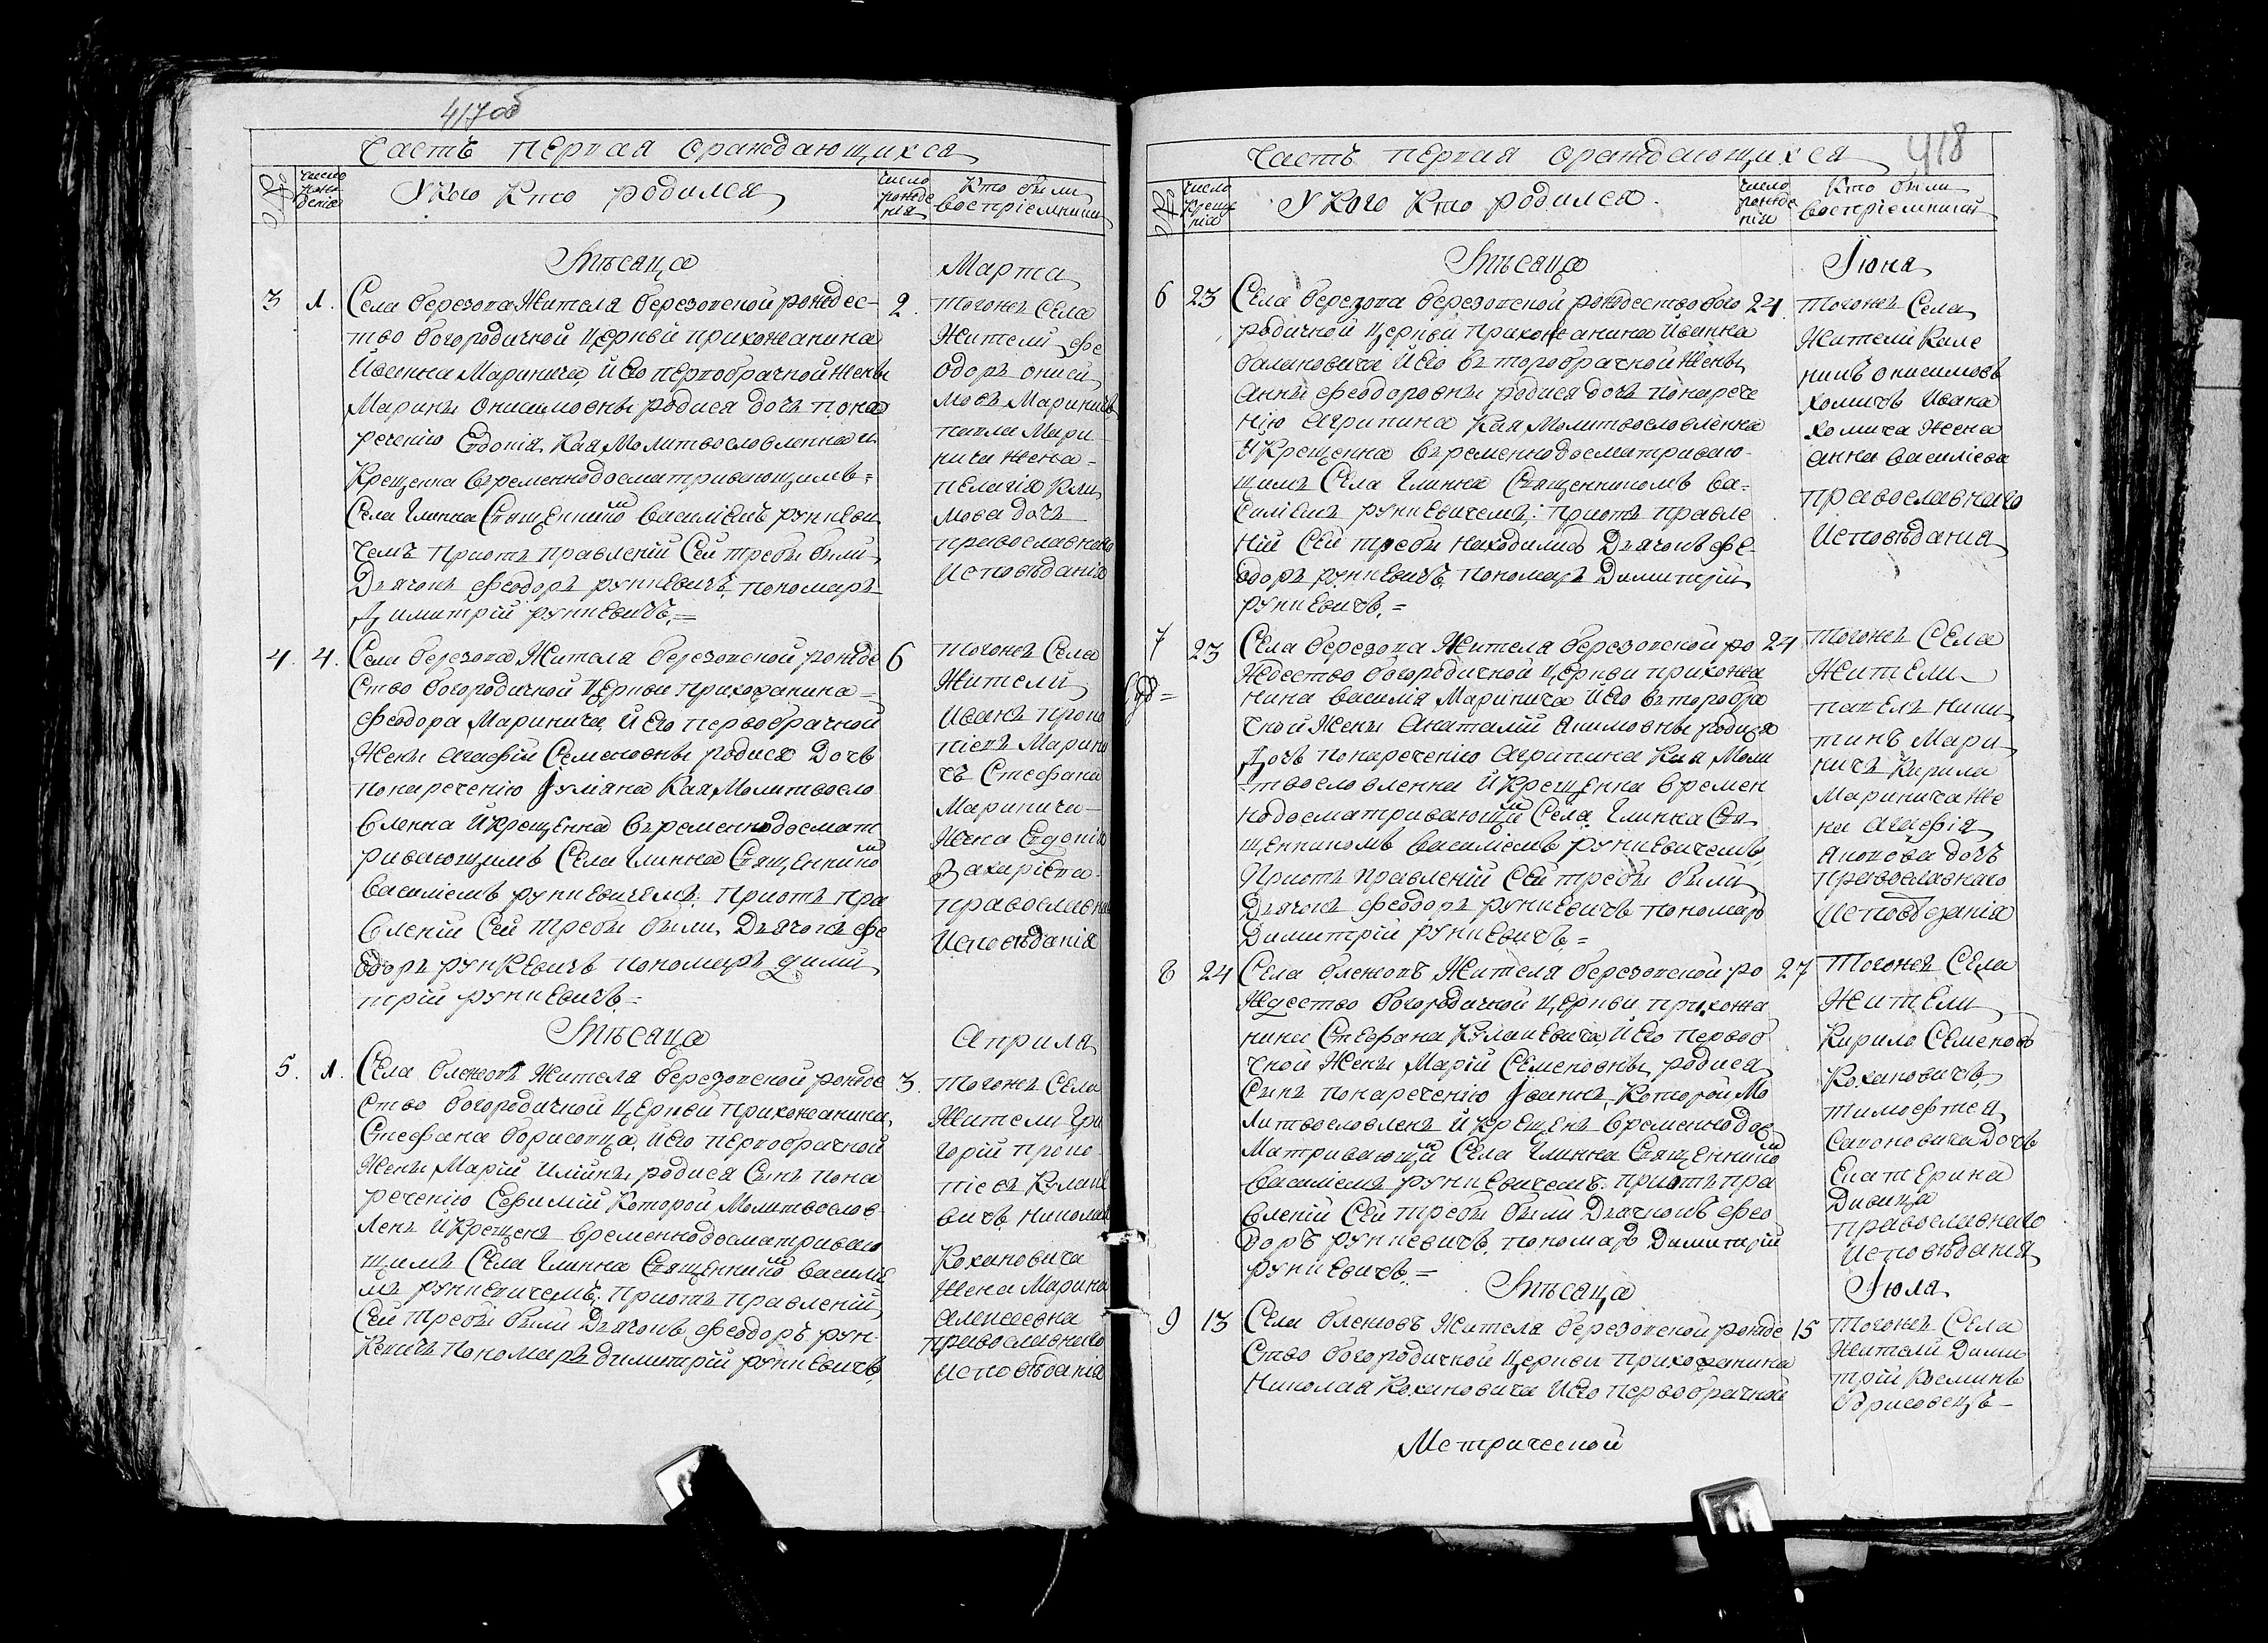 417об
Часть первая ораждающихся
№ число рожденія
У кого кто родился
число рожденія
Кто были воспріемники
Мѣсяца
Марта
3 1. Села березова жителя березовской рождес-
тво богородичной церкви прихожанина
Иванна Маринича, и его первобрачной жены
Марины Онисимовны родися дочь по на
речению Евдокія, кая молитвословленна и
крещенна временнодосматривающимъ =
села Глинна священникомъ василіемъ рункеви
чемъ при отъ правленій сей требы были
Дьячокъ феодоръ рункевичъ, пономаръ
Димитрій рункевичъ. =
2. тогожъ села
жители фе
одоръ ониси
мовъ Мариничъ
павла Мари
нича жена =
пелагія кли
мова дочь
православнаго
исповѣданія
4. 4. Села березова жителя березовской рожде
ство богородичной церкви прихожанина =
феодора Маринича, и его первобрачной
жены агафіи Семеновны родися дочь
по наречению Іуліяна кая молитвосло
вленна и крещенна временнодосмат
ривающимъ села Глинна священникомъ
василіемъ рункевичемъ. при отъ пра
вленій сей требы были, Дьячокъ фе
одоръ рункевичъ пономаръ дими
трій рункевичъ =
6 тогожъ села
жители
иванъ проко
піевъ Марини
чъ Стефана
Маринича
жена Евгенія
Захаріева.
православна
исповѣданія
Мѣсяца
Априля
5. 1. Села блежовъ жителя березовской рожде
ство богородичной церкви прихожанина,
Стефана борисовца, и его первобрачной
жены Маріи илійны родися сынъ по на
речению Ефимій который молитвослов
ленъ и крещенъ временнодосматриваю
щимъ села Глинна священникомъ василіе
мъ рункевичемъ; при отъ правленій
сей требы были Дьячокъ, феодоръ рун-
кевичъ пономаръ димитрій рункевичъ,
3. тогожъ села
жители гри
горій проко
піевъ
вичъ николая
Кохановича
жена Марина
алексеевна
православнаго
исповѣданія
418
Часть первая ораждающихся
№ число крещенія
У кого кто родился.
число рожденія
Кто были воспріемники
Мѣсяца
Іюня
6 23 Села березова березовской рождество бого
родичной церкви прихожанина иванна
балановича и его второбрачной жены
анны феодоровны родися дочь по нарече
нію агрипина кая молитвословленна
и крещенна временнодосматриваю-
щимъ села Глинна священникомъ ва-
силіемъ рункевичемъ: при отъ правле
ній сей требы находились Дьячокъ фе-
одоръ рункевичъ, пономаръ Димитрій
рункевичъ. =
24. тогожъ села
жители кале
никъ онисимовъ
хомичъ ивана
хомича жена
анна василіева
православнаго
исповѣданія
7 23 Села березова жителя березовской ро
ждество богородичной церкви прихожа
нина василія Маринича и его второбра
чной жены анаталіи акимовны родися
дочь по наречению агрипина кая моли
твословленна и крещенна времен
нодосматривающимъ села Глинна свя
щенникомъ василіемъ рункевичемъ,
при отъ правленій сей требы были
Дьячокъ феодоръ рункевичъ пономаръ
Димитрій рункевичъ. =
24 тогожъ села
жители
павелъ ники
тинъ Мари
ничъ кирила
Маринича же
на агафія
дочь
православнаго
исповѣданія
8 24 Села блежовъ жителя березовской ро
ждество богородичной церкви прихожа
нина Стефана кулакевича, и его первоб
чной жены Маріи Семеновны, родися
сынъ по наречению Іванъ, который мо
литвословленъ и крещенъ временнодос
матривающимъ села Глинна священникомъ
василіемъ рункевичемъ. при отъ пра
вленій сей требы были Дьячокъ фео
доръ рункевичъ, пономаръ Димитрій
рункевичъ. =
27 тогожъ села
жители
Кирило Семеновъ
Кохановичъ,
тимофтея
дочь
Екатерина
Дивица
православнаго
исповѣданія
Мѣсяца
Іюля
9 13 Села блежовъ жителя березовской рожде
ство богородичной церкви прихожанина
Николая Кохановича и его первобрачной
15 тогожъ села
жители Дими
трій
борисовецъ
Метрической